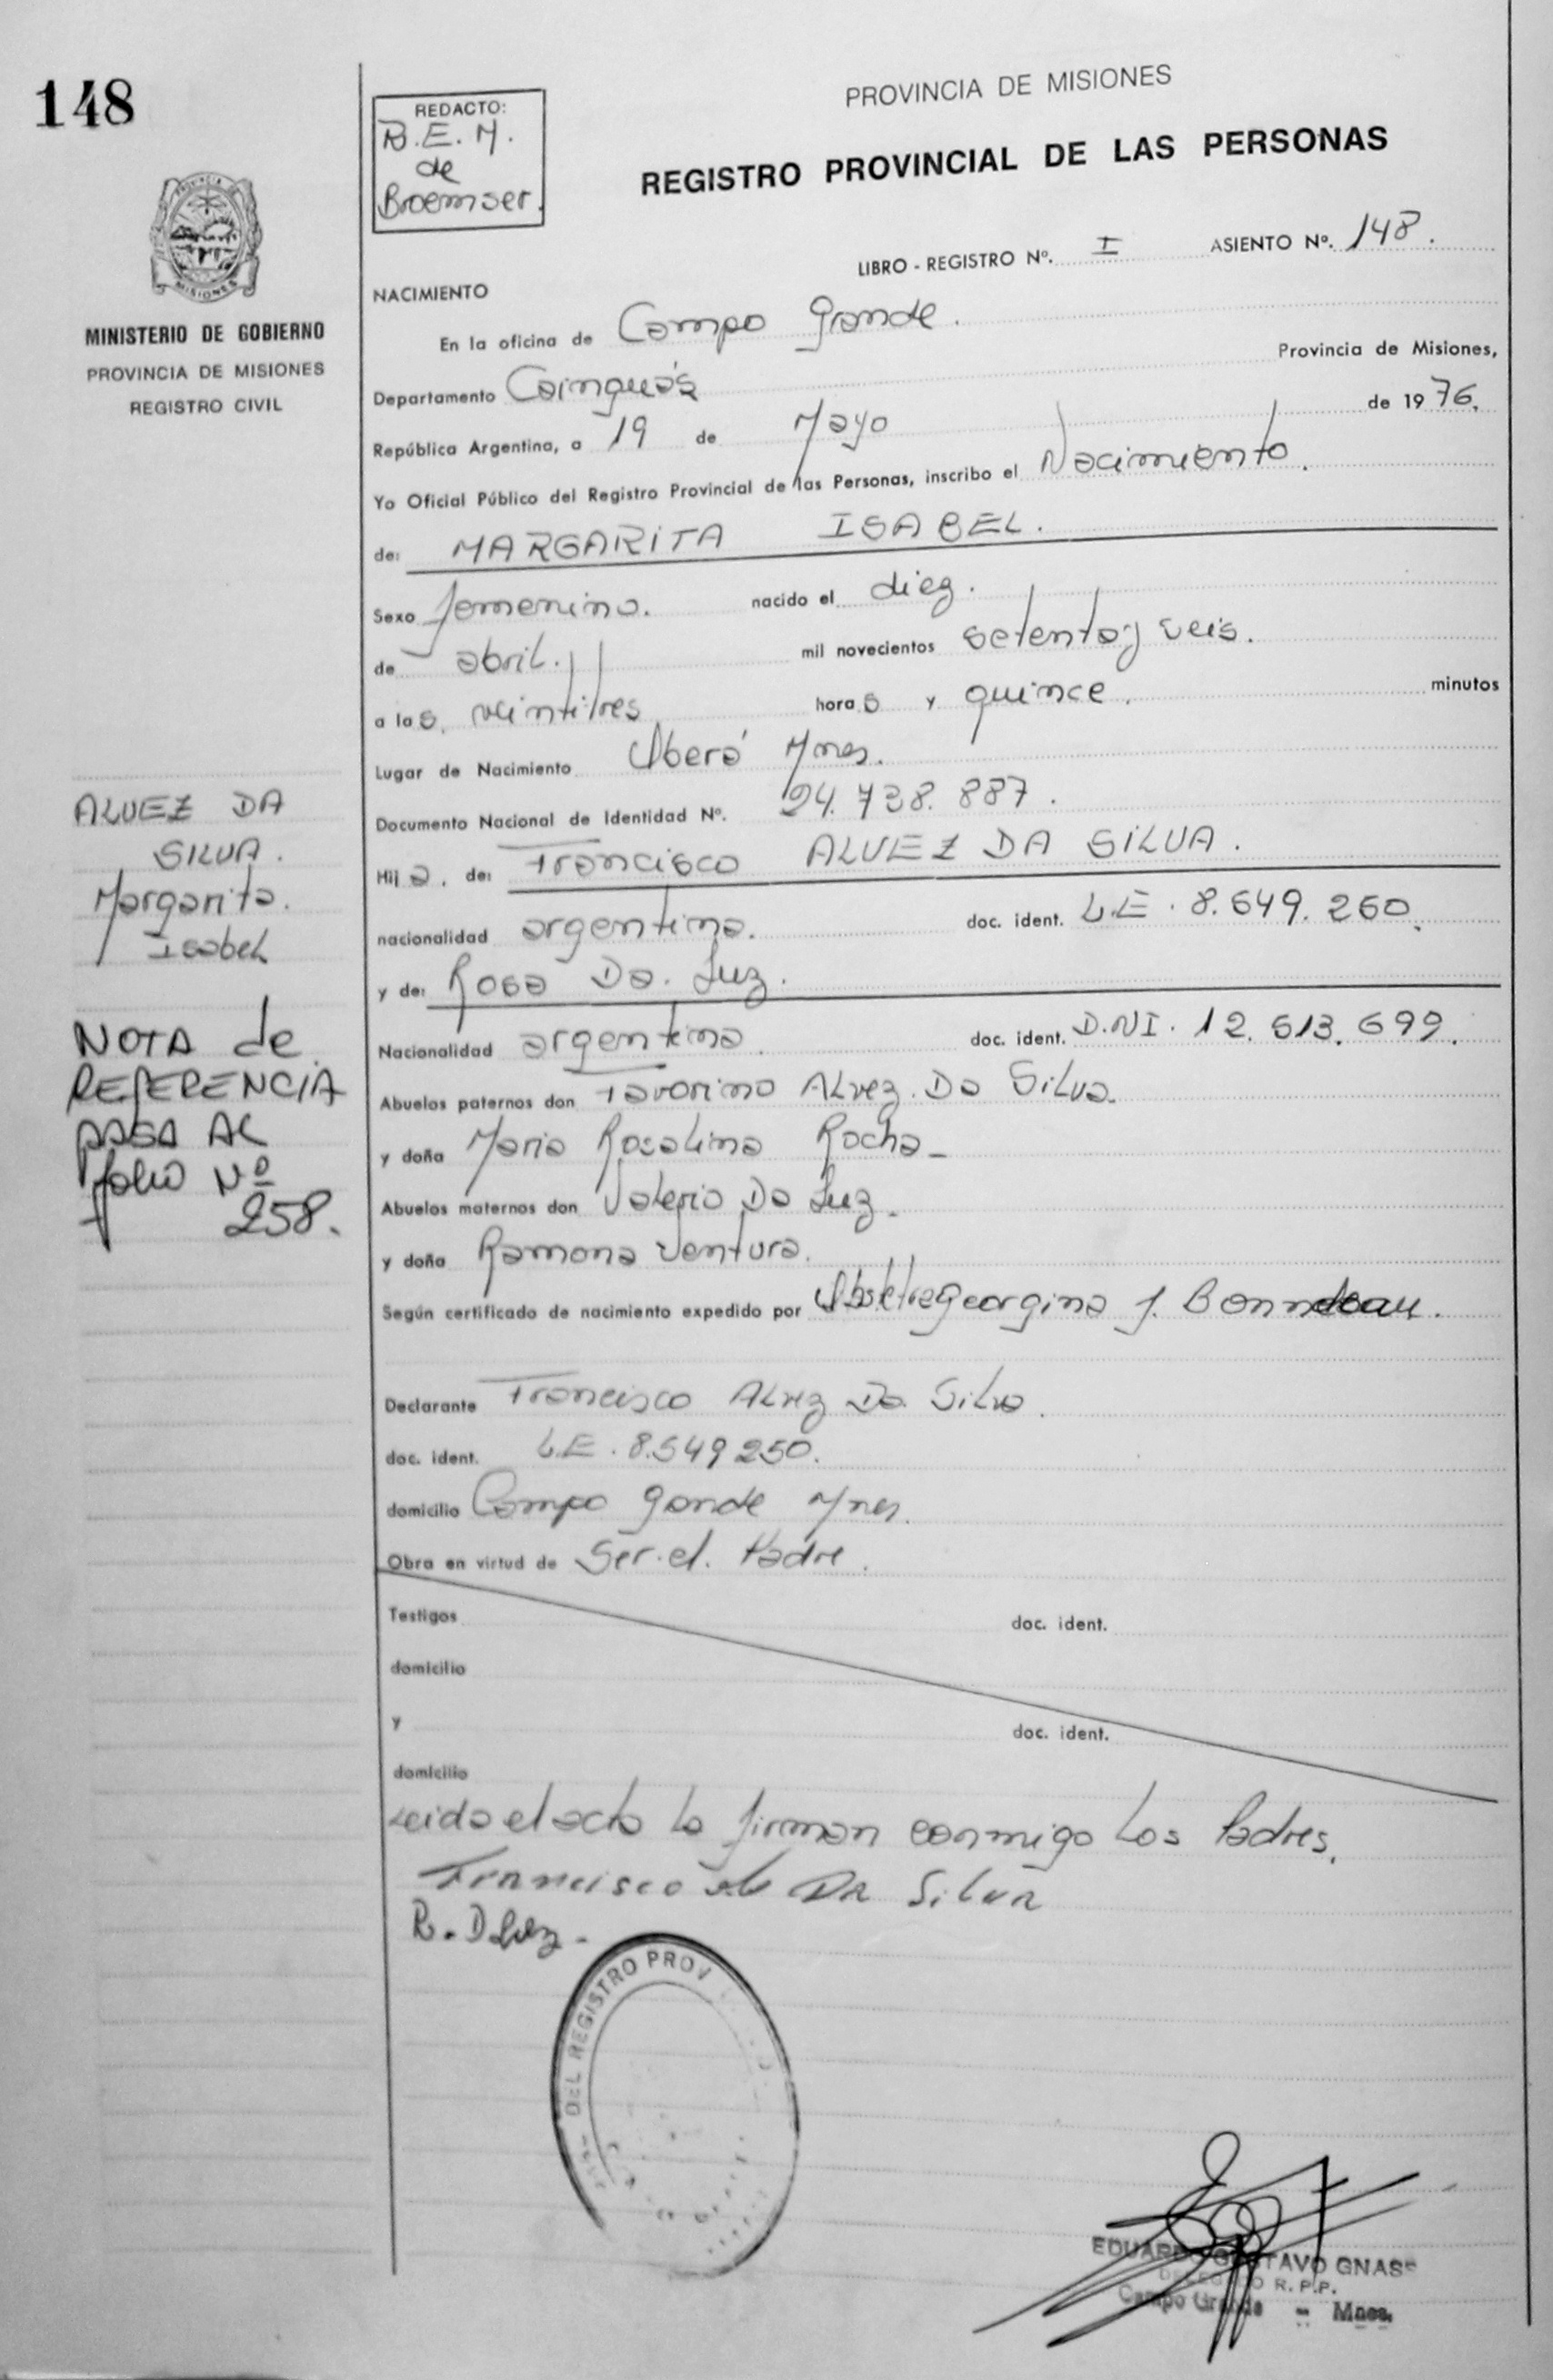 148
PROVINCIA DE MISIONES
REGISTRO PROVINCIAL DE LAS PERSONAS
REDACTO:
B.E.M.
de
Broemser.
LIBRO - REGISTRO Nº. I ASIENTO Nº. 148.
MINISTERIO DE GOBIERNO
PROVINCIA DE MISIONES
REGISTRO CIVIL
NACIMIENTO
En la oficina de Campo Grande.
Departamento Cainguás Provincia de Misiones,
República Argentina, a 19 de Mayo de 1976.
Yo Oficial Público del Registro Provincial de las Personas, inscribo el Nacimiento.
de: MARGARITA ISABEL.
Sexo femenino. nacido el diez.
de abril. mil novecientos setenta y seis.
a las. veintitres horas y quince. minutos
Lugar de Nacimiento Oberá Mnes.
Documento Nacional de Identidad Nº. 24.738.887.
Hija. de: Francisco ALVEZ DA SILVA.
nacionalidad argentina. doc. ident. L.E. 8.549.250.
y de: Rosa Da. Luz.
Nacionalidad argentina. doc. ident. D.NI. 12.513.699.
Abuelos paternos don Favorino ALvez. Da SiLva.
y doña Maria RosaLina Rocha-
Abuelos maternos don Valerio Da Luz.
y doña Ramona Ventura.
Según certificado de nacimiento expedido por Georgina J.
Declarante Francisco ALvez Da. SiLva.
doc. ident. L.E. 8.549250.
domicilio Campo gande Mnes.
Obra en virtud de Ser.el. Padre.
Testigos doc. ident.
domicilio
y doc. ident.
domicilio
Leida el acta la firman conmigo Los Padres.
Francisco DA SiLvA
R. D Luz-
ALVEZ DA
SILVA.
Margarita.
IsabeL
NOTA de
REFERENCIA
PASA AL
folio Nº
258.
DEL REGISTRO PROV
EDUARDO GUSTAVO GNASS
DELEGADO R.P.P.
Campo Grande - Mnes.